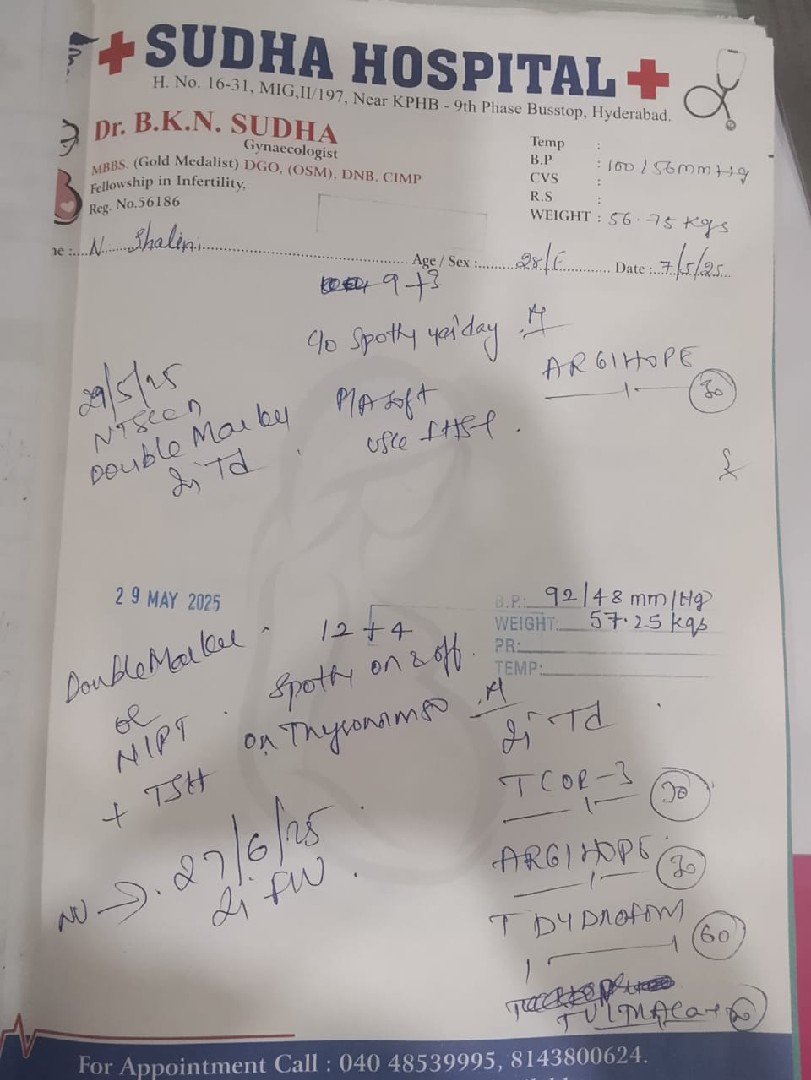 SUDHA HOSPITAL
H. No. 16-31, MIG,II/197, Near KPHB - 9th Phase Busstop, Hyderabad.
Dr. B.K.N. SUDHA
Gynaecologist
MBBS. (Gold Medalist) DGO, (OSM), DNB, CIMP
Fellowship in Infertility,
Reg. No.56186
Temp :
B.P : 100/56mmHg
CVS :
R.S :
WEIGHT : 56.75 kgs
N. Shalini Age / Sex : 28/F Date : 7/5/25
9+3
c/o Spotty day
ARGIHOPE
30
29/5/25
NT Scan
Double Marker
Inj Td
P/A Soft
29 MAY 2025
B.P: 92/48 mm/Hg
WEIGHT: 57.25 kgs
PR:
TEMP:
Double Marker
or
NIPT
+ TSH
12+4
Spotty on & off
on Thyronorm 50
Inj Td
T COR-3
30
ARGIHOPE
30
T DYDROFORM
60
NV → 27/6/25
For Appointment Call : 040 48539995, 8143800624.